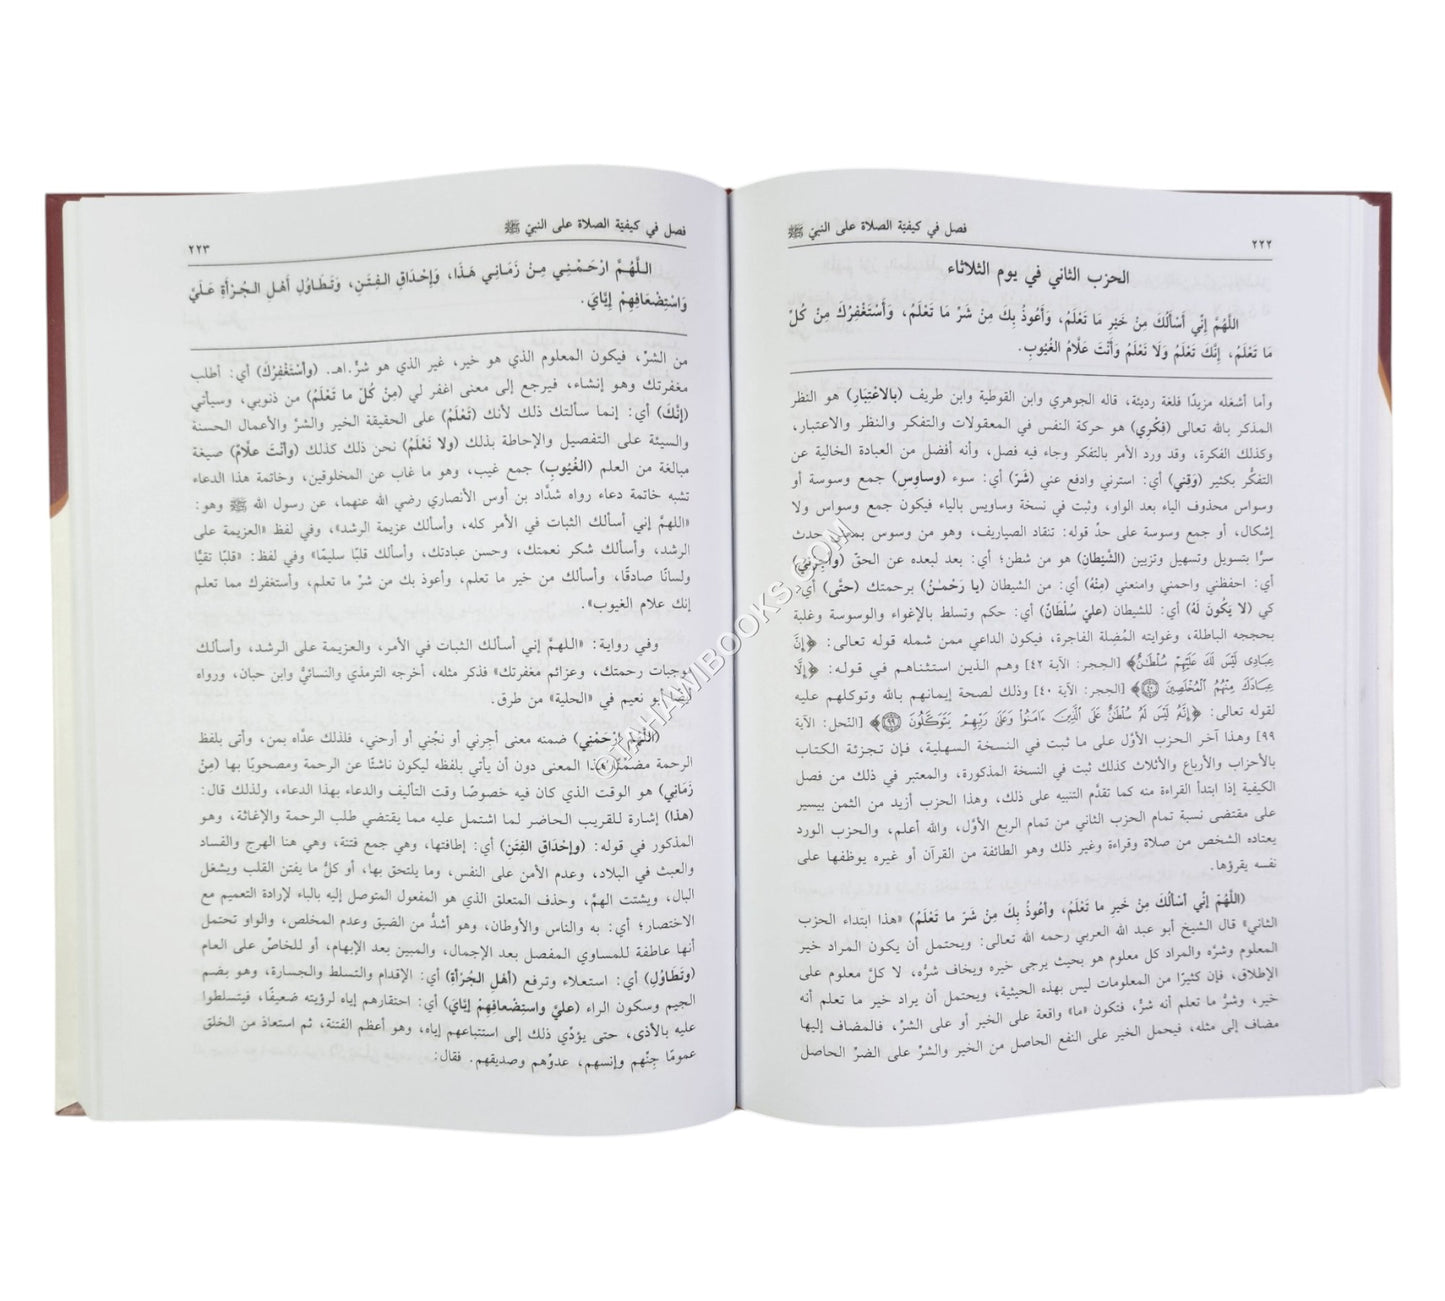 ٢٢٢
فصل في كيفيّة الصلاة على النبيّ ﷺ
الحزب الثاني في يوم الثلاثاء
اللَّهُمَّ إِنِّي أَسْأَلُكَ مِنْ خَيْرِ مَا تَعْلَمُ، وَأَعُوذُ بِكَ مِنْ شَرِّ مَا تَعْلَمُ، وَأَسْتَغْفِرُكَ مِنْ كُلِّ
مَا تَعْلَمُ، إِنَّكَ تَعْلَمُ وَلَا نَعْلَمُ وَأَنْتَ عَلَّامُ الغُيُوبِ.
وأما أشغله مزيدًا فلغة رديئة، قاله الجوهري وابن القوطية وابن طريف (بالاعْتِبَارِ) هو النظر
المذكر بالله تعالى (فِكْري) هو حركة النفس في المعقولات والتفكر والنظر والاعتبار،
وكذلك الفكرة، وقد ورد الأمر بالتفكر وجاء فيه فصل، وأنه أفضل من العبادة الخالية عن
التفكُّر بكثير (وَقِني) أي: استرني وادفع عني (شَرّ) أي: سوء (وساوس) جمع وسوسة أو
وسواس محذوف الياء بعد الواو، وثبت في نسخة وساويس بالياء فيكون جمع وسواس ولا
إشكال، أو جمع وسوسة على حدّ قوله: تنقاد الصياريف، وهو من وسوس بمعنى حدث
سرًّا بتسويل وتسهيل وتزيين (الشَّيْطانِ) هو من شطن؛ أي: بعد لبعده عن الحقّ (وأجِرني)
أي: احفظني واحمني وامنعني (مِنْهُ) أي: من الشيطان (يا رَحْمـٰنُ) برحمتك (حتّى) أي:
كي (لا يَكُونَ لَهُ) أي: للشيطان (عليّ سُلْطَانٌ) أي: حكم وتسلط بالإغواء والوسوسة وغلبة
بحججه الباطلة، وغوايته المُضِلة الفاجرة، فيكون الداعي ممن شمله قوله تعالى: ﴿إِنَّ
عِبَادِى لَيْسَ لَكَ عَلَيْهِمْ سُلْطَـٰنٌ﴾ [الحجر: الآية ٤٢] وهم الذين استثناهم في قوله: ﴿إِلَّا
عِبَادَكَ مِنْهُمُ ٱلْمُخْلَصِينَ ٤٠﴾ [الحجر: الآية ٤٠] وذلك لصحة إيمانهم بالله وتوكلهم عليه
لقوله تعالى: ﴿إِنَّهُ لَيْسَ لَهُ سُلْطَـٰنٌ عَلَى ٱلَّذِينَ ءَامَنُوا وَعَلَىٰ رَبِّهِمْ يَتَوَكَّلُونَ ٩٩﴾ [النّحل: الآية
٩٩] وهذا آخر الحزب الأوّل على ما ثبت في النسخة السهلية، فإن تجزئة الكتاب
بالأحزاب والأرباع والأثلاث كذلك ثبت في النسخة المذكورة، والمعتبر في ذلك من فصل
الكيفية إذا ابتدأ القراءة منه كما تقدَّم التنبيه على ذلك، وهذا الحزب أزيد من الثمن بيسير
على مقتضى نسبة تمام الحزب الثاني من تمام الربع الأوَّل، والله أعلم، والحزب الورد
يعتاده الشخص من صلاة وقراءة وغير ذلك وهو الطائفة من القرآن أو غيره يوظفها على
نفسه يقرؤها.
(اللَّهُمّ إنِّي أسْألُكَ مِنْ خَيرِ ما تَعْلَمُ، وَأعُوذُ بِكَ مِنْ شَرّ ما تَعْلَمُ) «هذا ابتداء الحزب
الثاني» قال الشيخ أبو عبد الله العربي رحمه الله تعالى: ويحتمل أن يكون المراد خير
المعلوم وشرَّه والمراد كل معلوم هو بحيث يرجى خيره ويخاف شرُّه، لا كلّ معلوم على
الإطلاق، فإن كثيرًا من المعلومات ليس بهذه الحيثية، ويحتمل أن يراد خير ما تعلم أنه
خير، وشرُّ ما تعلم أنه شرّ، فتكون «ما» واقعة على الخير أو على الشرّ، فالمضاف إليها
مضاف إلى مثله، فيحمل الخير على النفع الحاصل من الخير والشرّ على الضرّ الحاصل
فصل في كيفيّة الصلاة على النبيّ ﷺ
٢٢٣
اللَّهُمَّ ارْحَمْنِي مِنْ زَمَانِي هَذَا، وَإِحْدَاقِ الفِتَنِ، وَتَطَاوُلِ أَهْلِ الجُرْأَةِ عَلَيَّ
وَاسْتِضْعَافِهِمْ إِيَّايَ.
من الشرّ، فيكون المعلوم الذي هو خير، غير الذي هو شرّ. اهـ. (وأسْتَغْفِرُكَ) أي: أطلب
مغفرتك وهو إنشاء، فيرجع إلى معنى اغفر لي (مِنْ كُلّ ما تَعْلَمُ) من ذنوبي، وسيأتي
(إنّكَ) أي: إنما سألتك ذلك لأنك (تَعْلَمُ) على الحقيقة الخير والشرّ والأعمال الحسنة
والسيئة على التفصيل والإحاطة بذلك (ولا نَعْلَمُ) نحن ذلك كذلك (وأنْتَ علّامُ) صيغة
مبالغة من العلم (الغُيُوبِ) جمع غيب، وهو ما غاب عن المخلوقين، وخاتمة هذا الدعاء
تشبه خاتمة دعاء رواه شدَّاد بن أوس الأنصاري رضي الله عنهما، عن رسول الله ﷺ وهو:
«اللهمَّ إني أسألك الثبات في الأمر كله، وأسألك عزيمة الرشد»، وفي لفظ «العزيمة على
الرشد، وأسألك شكر نعمتك، وحسن عبادتك، وأسألك قلبًا سليمًا» وفي لفظ: «قلبًا تقيًّا
ولسانًا صادقًا، وأسألك من خير ما تعلم، وأعوذ بك من شرّ ما تعلم، وأستغفرك مما تعلم
إنك علام الغيوب».
وفي رواية: «اللهمَّ إني أسألك الثبات في الأمر، والعزيمة على الرشد، وأسألك
موجبات رحمتك، وعزائم مغفرتك» فذكر مثله، أخرجه الترمذي والنسائيُّ وابن حبان، ورواه
أيضًا أبو نعيم في «الحلية» من طرق.
(اللَّهُمّ ارْحَمْنِي) ضمنه معنى أجِرني أو نجِّني أو أرحني، فلذلك عدَّاه بمن، وأتى بلفظ
الرحمة مضمّنًا هذا المعنى دون أن يأتي بلفظه ليكون ناشئًا عن الرحمة ومصحوبًا بها (مِنْ
زَمَانِي) هو الوقت الذي كان فيه خصوصًا وقت التأليف والدعاء بهذا الدعاء، ولذلك قال:
(هذا) إشارة للقريب الحاضر لما اشتمل عليه مما يقتضي طلب الرحمة والإغاثة، وهو
المذكور في قوله: (وإحْدَاقِ الفِتَنِ) أي: إطافتها، وهي جمع فتنة، وهي هنا الهرج والفساد
والعبث في البلاد، وعدم الأمن على النفس، وما يلتحق بها، أو كلُّ ما يفتن القلب ويشغل
البال، ويشتت الهمَّ، وحذف المتعلق الذي هو المفعول المتوصل إليه بالباء لإرادة التعميم مع
الاختصار؛ أي: به والناس والأوطان، وهو أشدُّ من الضيق وعدم المخلص، والواو تحتمل
أنها عاطفة للمساوي المفصل بعد الإجمال، والمبين بعد الإبهام، أو للخاصّ على العام
(وتَطَاوُلِ) أي: استعلاء وترفع (أهْلِ الجُرْأةِ) أي: الإقدام والتسلط والجسارة، وهو بضم
الجيم وسكون الراء (عليَّ واستِضْعافِهِمْ إيَّايَ) أي: احتقارهم إياه لرؤيته ضعيفًا، فيتسلطوا
عليه بالأذى، حتى يؤدّي ذلك إلى استتباعهم إياه، وهو أعظم الفتنة، ثم استعاذ من الخلق
عمومًا جنّهم وإنسهم، عدوّهم وصديقهم. فقال:
©TAHAWIBOOKS.COM